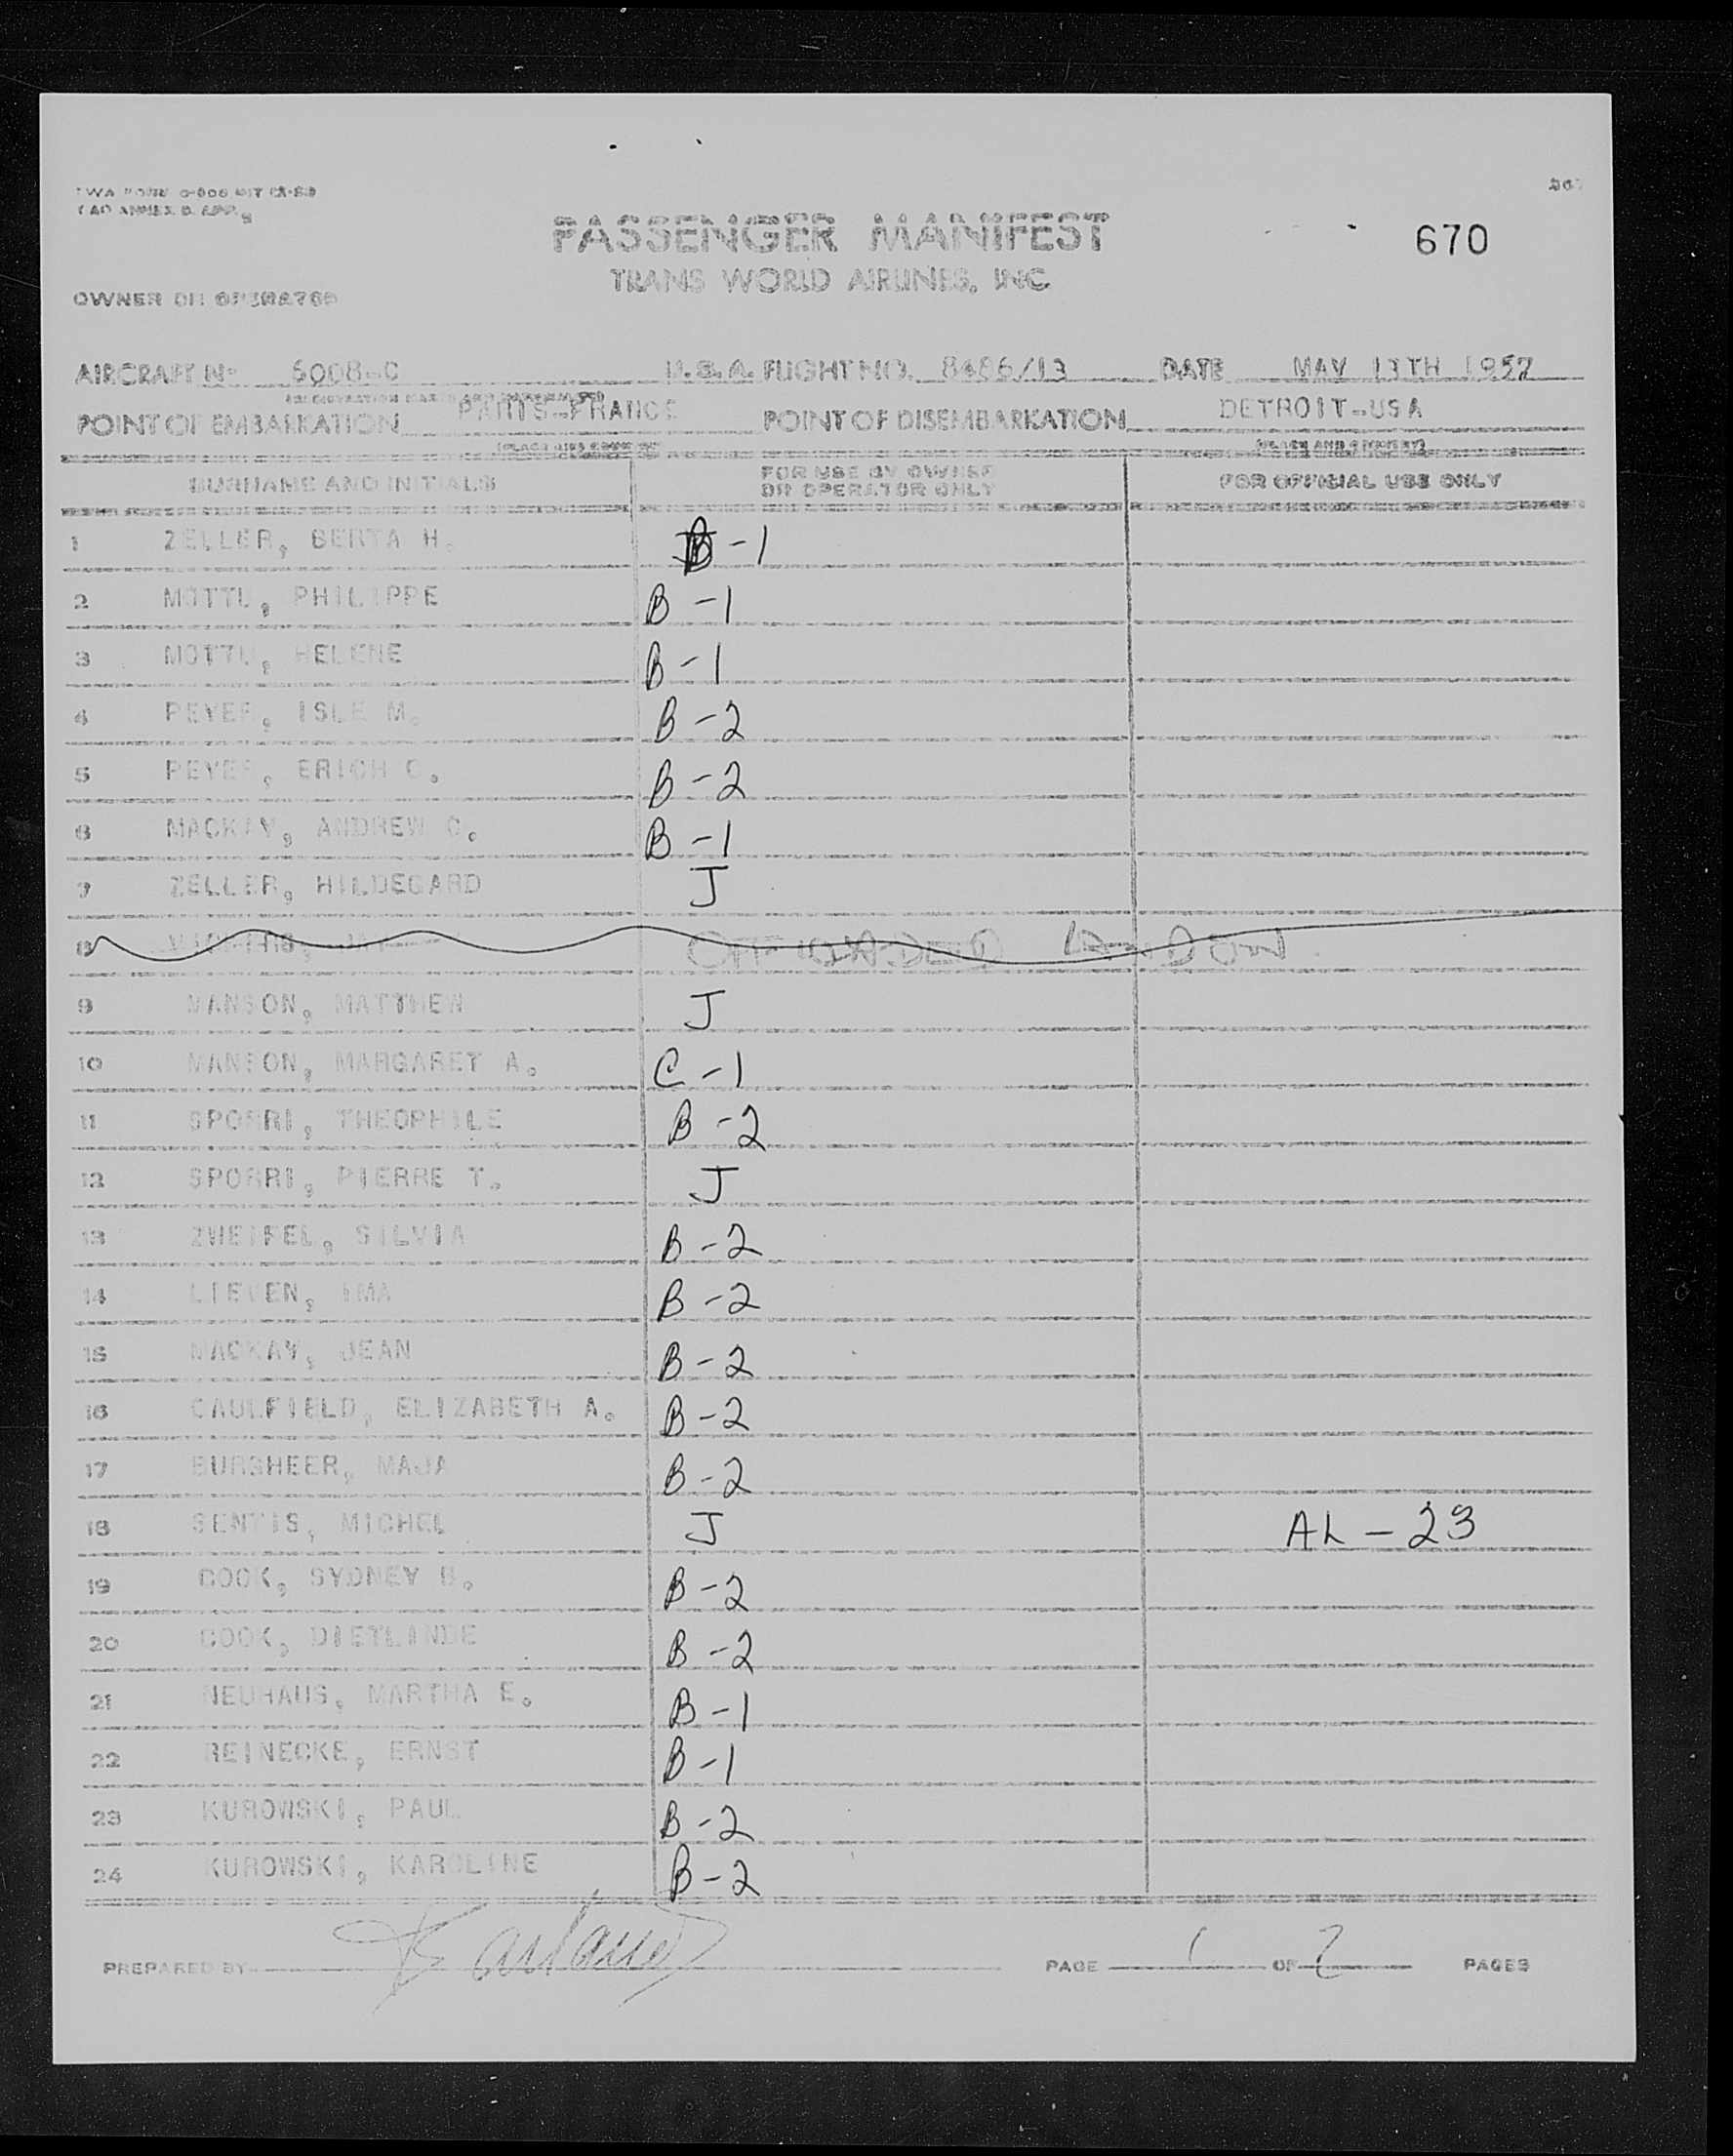 PASSENGER MANIFEST
670
TRANS WORLD AIRLINES, INC.
OWNER OR OPERATOR
AIRCRAFT Nº 6008-C U.S.A. FLIGHT NO. 8486/13 DATE MAY 13TH 1957
POINT OF EMBARKATION PARIS-FRANCE POINT OF DISEMBARKATION DETROIT-USA
(PLACE AND COUNTRY) (PLACE AND COUNTRY)
SURNAME AND INITIALS FOR USE BY OWNER OR OPERATOR ONLY FOR OFFICIAL USE ONLY
1 ZELLER, BERTA H. B-1
2 MOTTU, PHILIPPE B-1
3 MOTTU, HELENE B-1
4 PEYER, ISLE M. B-2
5 PEYER, ERICH C. B-2
6 MACKAY, ANDREW C. B-1
7 ZELLER, HILDEGARD J
8 OFFLOADED LONDON
9 MANSON, MATTHEW J
10 MANSON, MARGARET A. C-1
11 SPORRI, THEOPHILE B-2
12 SPORRI, PIERRE T. J
13 ZWEIFEL, SILVIA B-2
14 LIEVEN, IMA B-2
15 MACKAY, JEAN B-2
16 CAULFIELD, ELIZABETH A. B-2
17 BURGHEER, MAJA B-2
18 SENTIS, MICHEL J AL-23
19 COOK, SYDNEY B. B-2
20 COOK, DIETLINDE B-2
21 NEUHAUS, MARTHA E. B-1
22 REINECKE, ERNST B-1
23 KUROWSKI, PAUL B-2
24 KUROWSKI, KAROLINE B-2
PREPARED BY PAGE 1 OF 2 PAGES